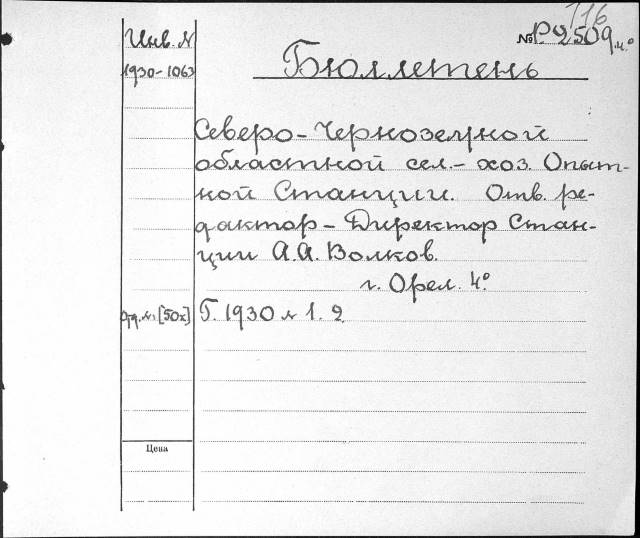 116
Инв. N
№ Р. 2509 4.°
1930-1063
Бюллетень
Северо-Черноземной
областной сел.-хоз. Опыт-
ной Станции. Отв. ре-
дактор - Директор Стан-
ции А.А. Волков.
г. Орел. 4.°
Г. 1930 N 1. 2.
Цена